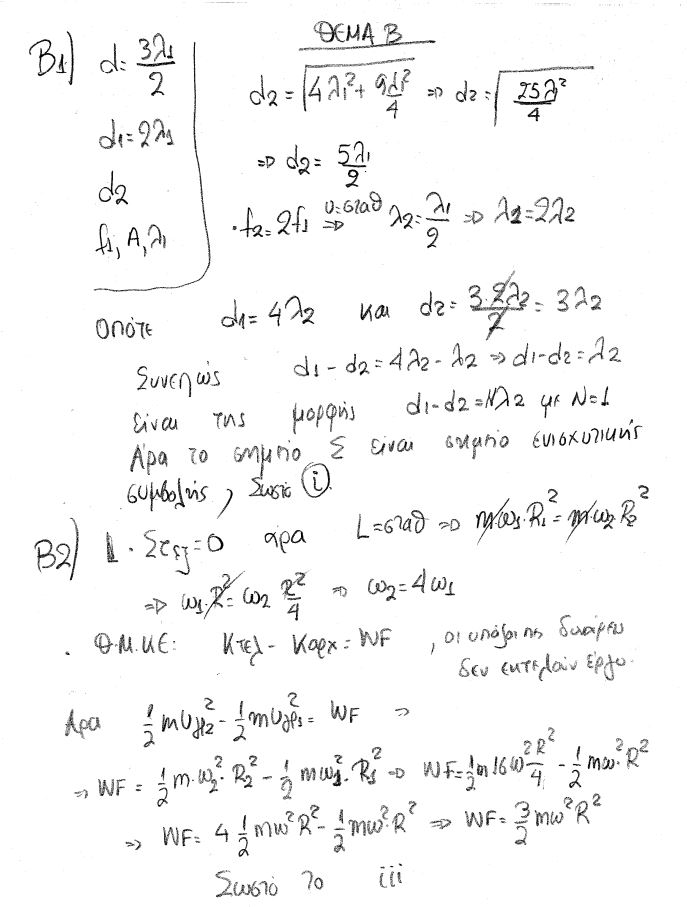 ΘΕΜΑ Β
Β1) d = 3λ1/2
d1 = 2λ1
d2
f1, A, λ1
d2 = √(4λ1² + 9λ1²/4) ⇒ d2 = √(25λ1²/4)
⇒ d2 = 5λ1/2
· f2 = 2f1 υ=σταθ ⇒ λ2 = λ1/2 ⇒ λ1 = 2λ2
οπότε d1 = 4λ2 και d2 = 3·2λ2/2 = 3λ2
Συνεπώς d1 - d2 = 4λ2 - λ2 ⇒ d1-d2 = λ2
είναι της μορφής d1-d2 = Νλ2 με Ν=1
Άρα το σημείο Σ είναι σημείο ενισχυτικής
συμβολής, Σωστό (i).
Β2) · Στεξ = 0 άρα L = σταθ ⇒ mω1·R1² = mω2 R2²
⇒ ω1·R² = ω2 R²/4 ⇒ ω2 = 4ω1
· Θ.Μ.Κ.Ε: Κτελ - Καρχ = WF, οι υπόλοιπες δυνάμεις
δεν εκτελούν έργο.
Άρα 1/2 mυγρ2² - 1/2 mυγρ1² = WF ⇒
⇒ WF = 1/2 m·ω2²·R2² - 1/2 mω1²·R1² ⇒ WF = 1/2 m 16ω² R²/4 - 1/2 mω²·R²
⇒ WF = 4 1/2 mω²R² - 1/2 mω²·R² ⇒ WF = 3/2 mω²R²
Σωστό το iii